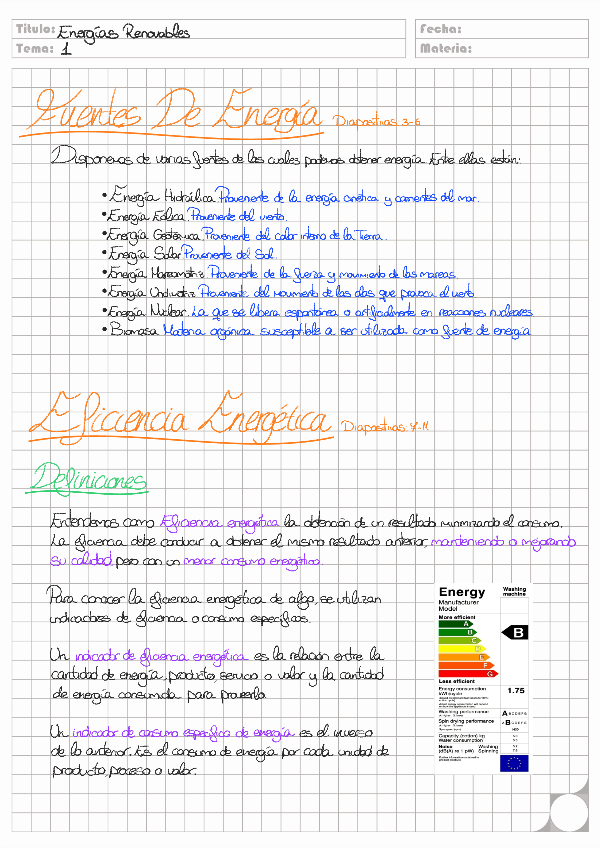 Título: Energías Renovables
Fecha:
Tema: 1
Materia:
Fuentes De Energía Diapositivas 3-6
Disponemos de varias fuentes de las cuales podemos obtener energía. Entre ellas están:
• Energía Hidráulica Proveniente de la energía cinética y corrientes del mar.
• Energía Eólica Proveniente del viento.
• Energía Geotérmica Proveniente del calor interno de la Tierra.
• Energía Solar Proveniente del Sol.
• Energía Mareomotriz Proveniente de la fuerza y movimiento de las mareas.
• Energía Undimotriz Proveniente del movimiento de las olas que provoca el viento
• Energía Nuclear La que se libera espontánea o artificialmente en reacciones nucleares
• Biomasa Materia orgánica susceptible a ser utilizada como fuente de energía
Eficiencia Energética Diapositivas 7-11
Definiciones
Entendemos como Eficiencia energética la obtención de un resultado minimizando el consumo.
La eficiencia debe conducir a obtener el mismo resultado anterior, manteniendo o mejorando
su calidad, pero con un menor consumo energético.
Para conocer la eficiencia energética de algo, se utilizan
indicadores de eficiencia o consumo específicos.
Un indicador de eficiencia energética es la relación entre la
cantidad de energía, producto servicio o valor y la cantidad
de energía consumida para proveerlo.
Un indicador de consumo específico de energía es el inverso
de lo anterior. Es el consumo de energía por cada unidad de
producto, proceso o valor.
Energy
Washing machine
Manufacturer
Model
More efficient
A
B
B
C
D
E
F
G
Less efficient
Energy consumption
kWh/cycle
1.75
Washing performance
A BCDEFG
Spin drying performance
A B CDEFG
Capacity (cotton) kg
Water consumption
Noise
(dB(A) re 1 pW)
Washing
Spinning